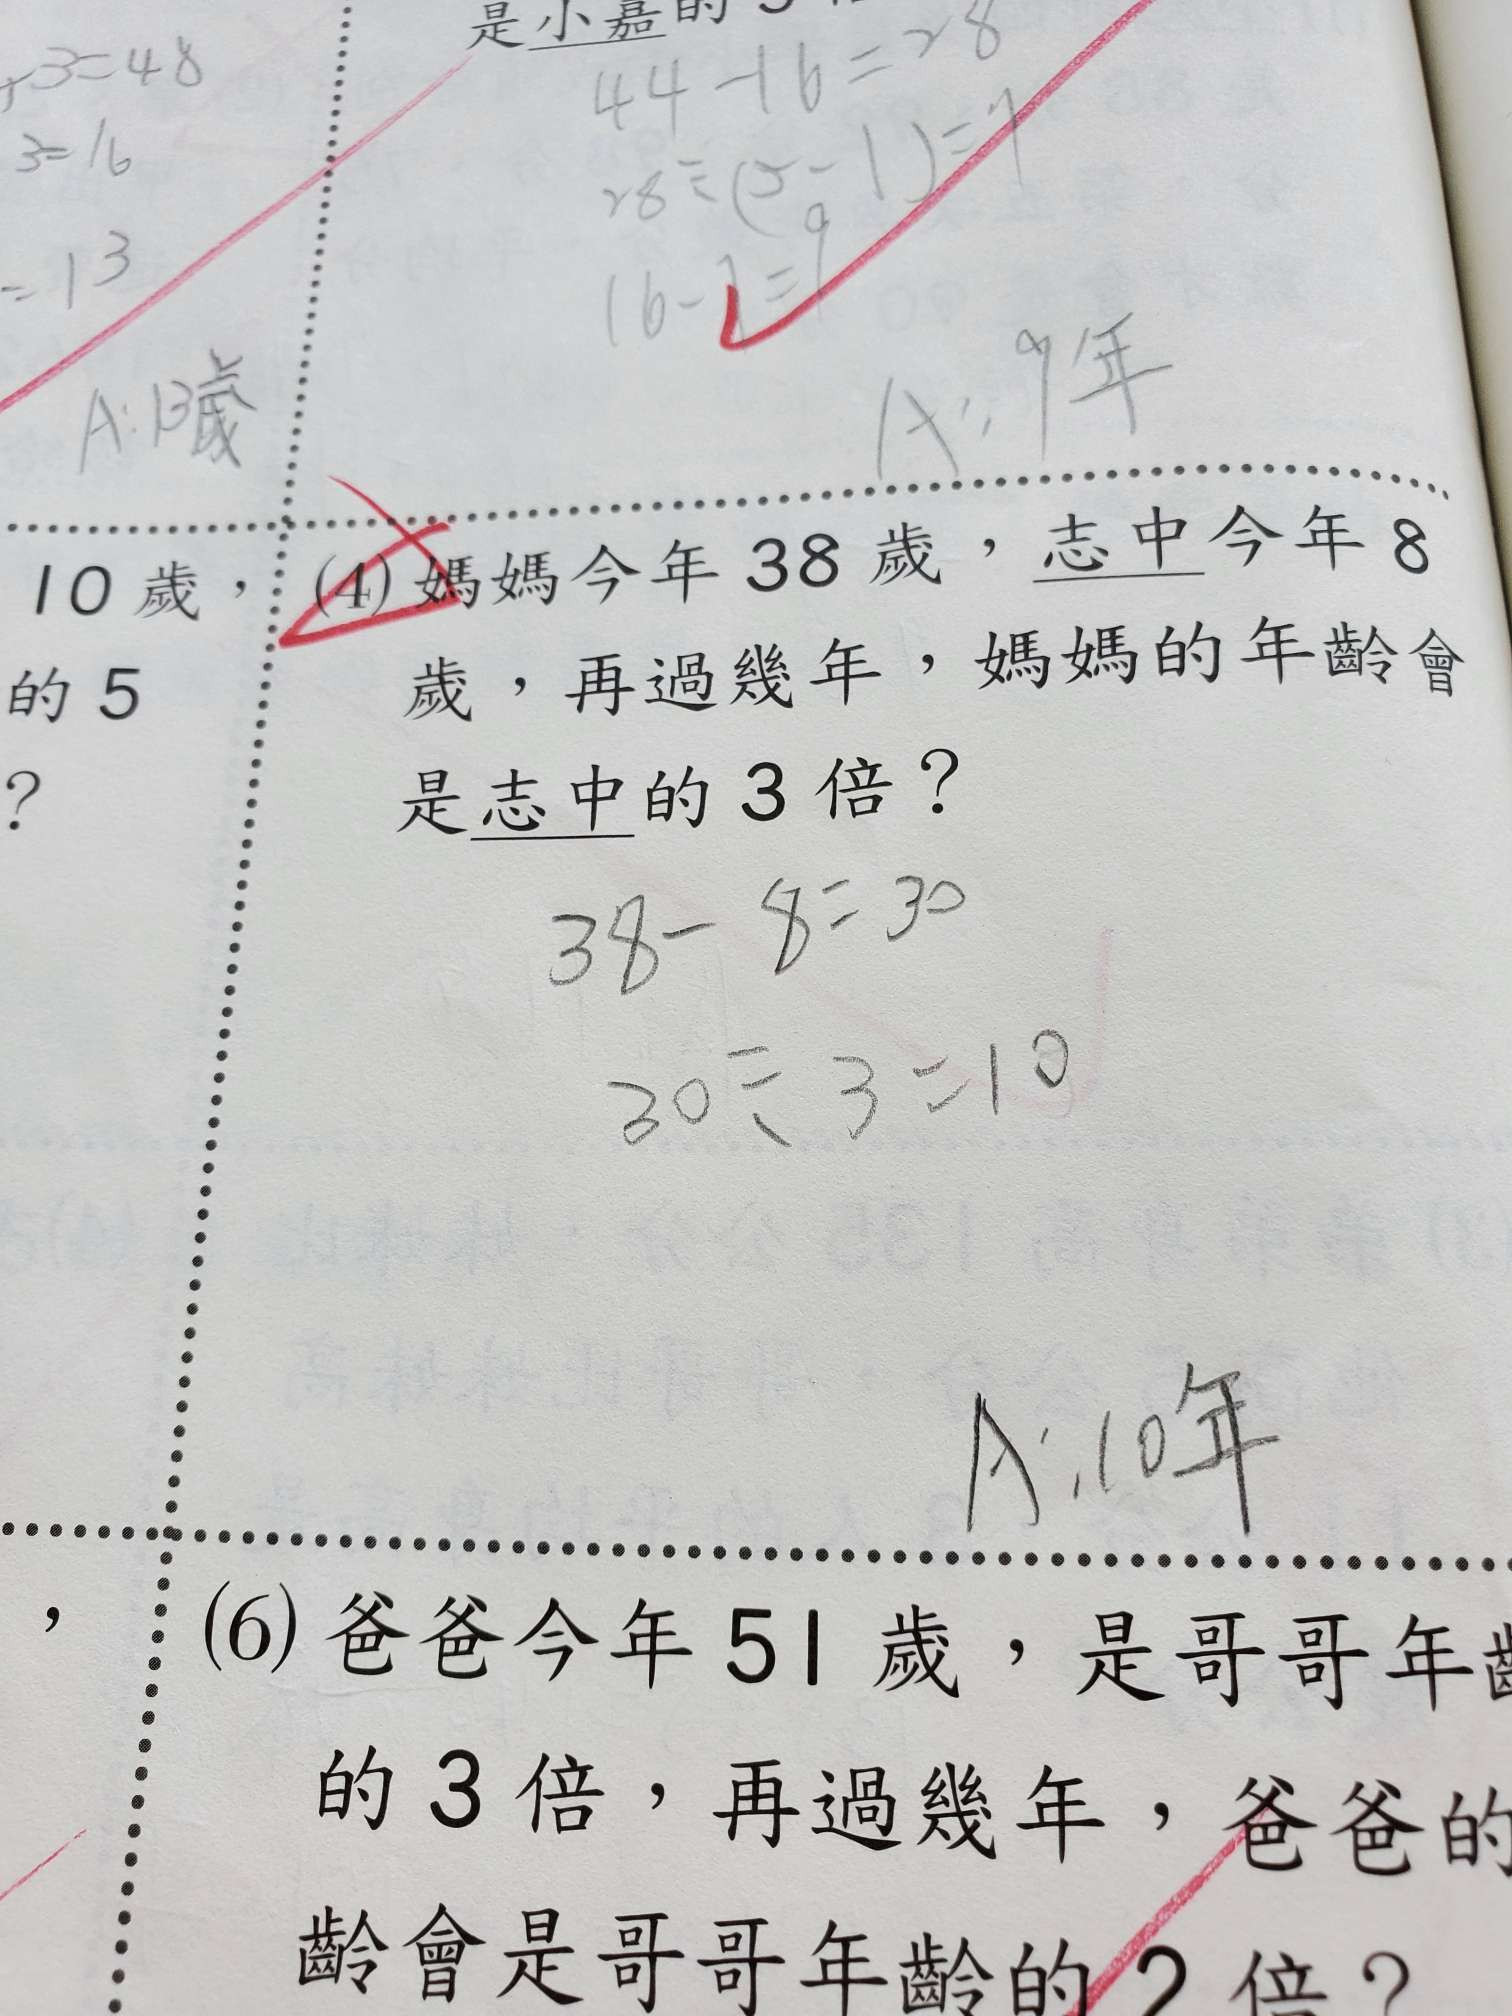 +3=48
3=16
=13
A:13歲
是小嘉的
44-16=28
28÷(5-1)=7
16-7=9
A:9年
10歲，
的5
？
(4)媽媽今年38歲，志中今年8
歲，再過幾年，媽媽的年齡會
是志中的3倍？
38-8=30
30÷3=10
A:10年
，
(6)爸爸今年51歲，是哥哥年齡
的3倍，再過幾年，爸爸的
齡會是哥哥年齡的2倍？